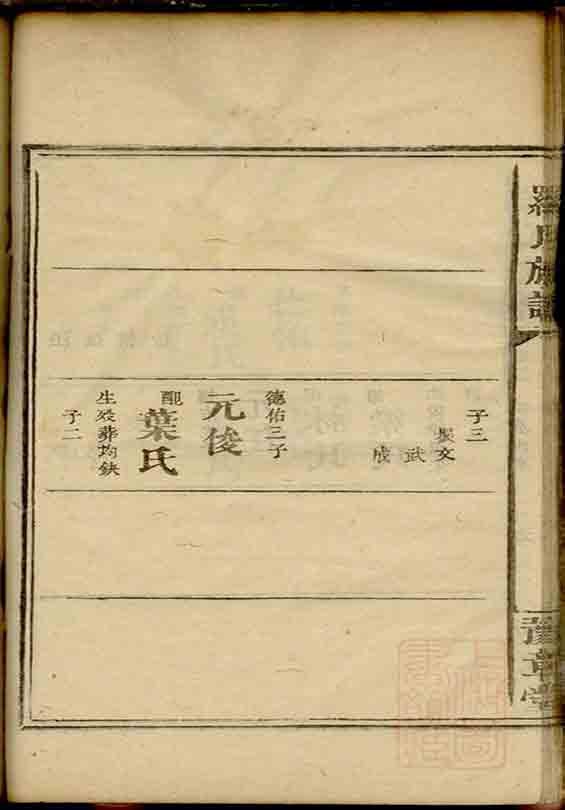 羅氏族譜
豫章堂
子三
文
武
成
德佑三子
元俊
配葉氏
生歿葬均缺
子二